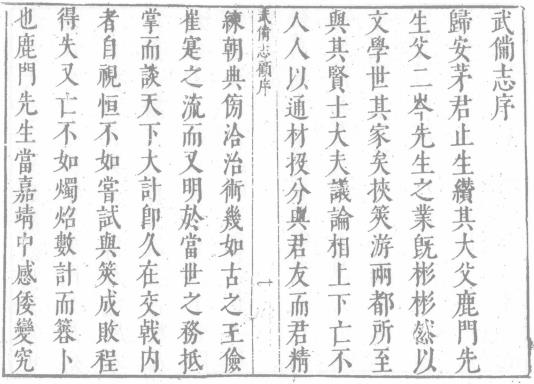 武備志序
歸安茅君止生纘其大父鹿門先
生父二岑先生之業旣彬彬然以
文學世其家矣挾筴游兩都所至
與其賢士大夫議論相上下亡不
人人以通材投分與君友而君精
武備志顧序
一
練朝典傍洽治術幾如古之王儉
崔寔之流而又明於當世之務抵
掌而談天下大計卽久在交戟内
者自視恒不如嘗試與筴成敗程
得失又亡不如燭炤數計而簭卜
也鹿門先生當嘉靖中感倭變究